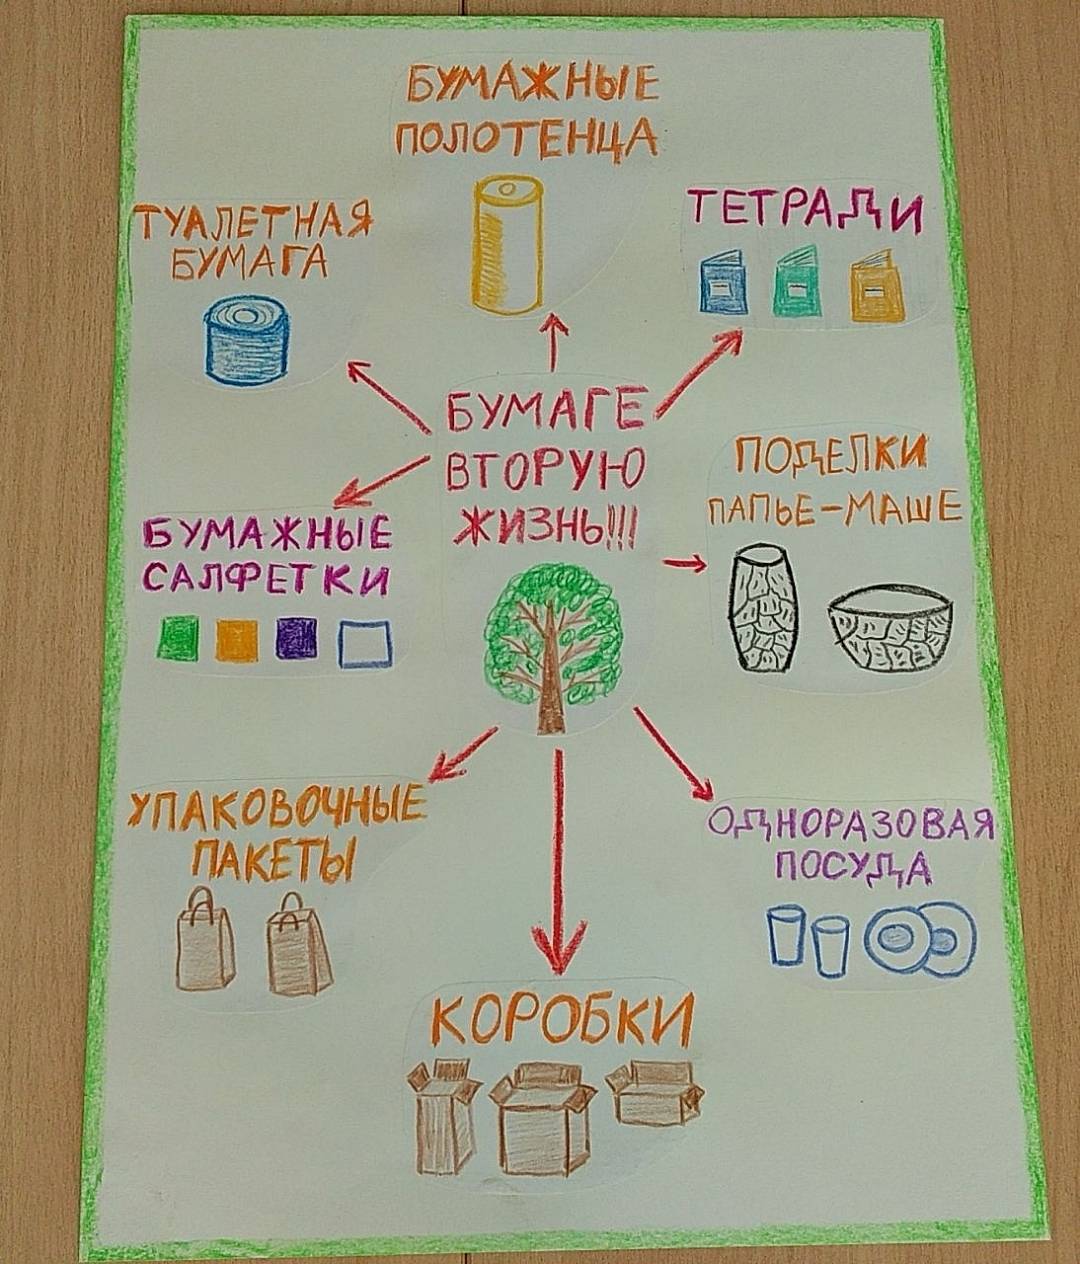 БУМАЖНЫЕ
ПОЛОТЕНЦА
ТУАЛЕТНАЯ
БУМАГА
ТЕТРАДИ
БУМАГЕ
ВТОРУЮ
ЖИЗНЬ!!!
ПОДЕЛКИ
ПАПЬЕ-МАШЕ
БУМАЖНЫЕ
САЛФЕТКИ
УПАКОВОЧНЫЕ
ПАКЕТЫ
ОДНОРАЗОВАЯ
ПОСУДА
КОРОБКИ